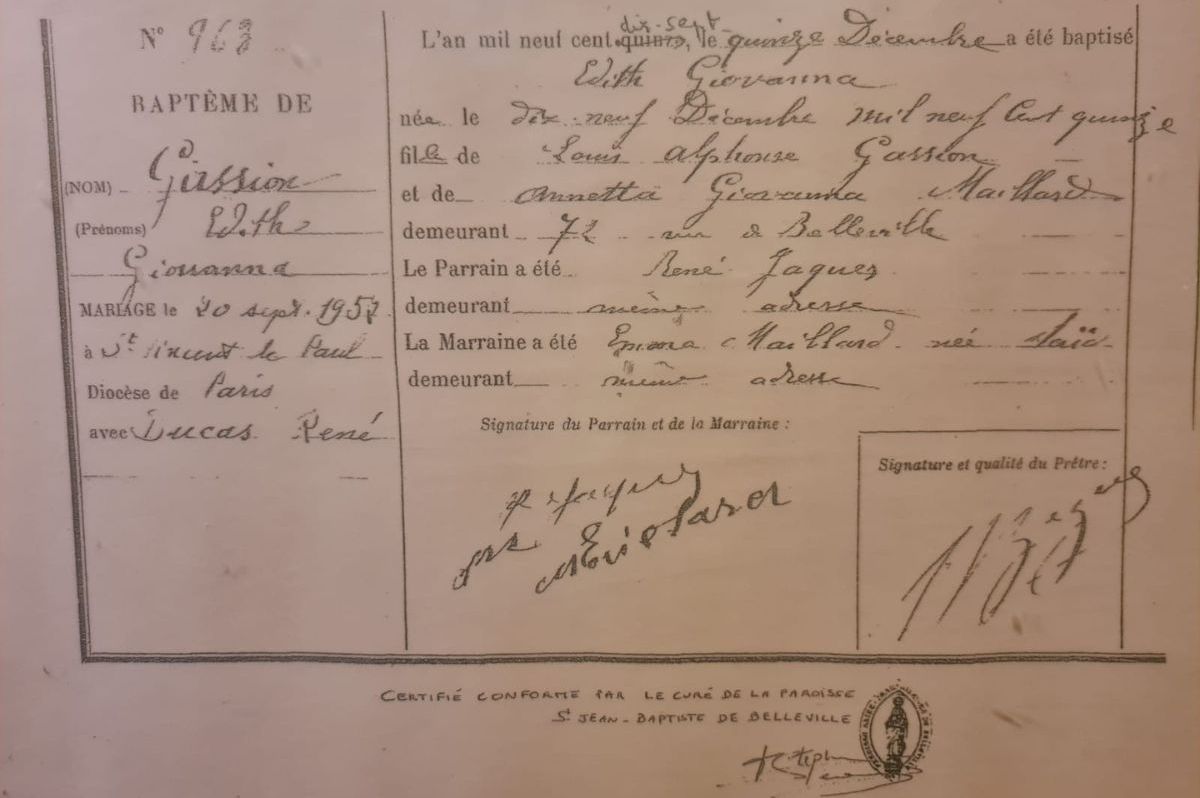 N° 963
BAPTÊME DE
(NOM) Gassion
(Prénoms) Edith
Giovanna
MARIAGE le 20 sept. 1952
à St Vincent de Paul
Diocèse de Paris
avec Ducas René
L'an mil neuf cent quinze, dix-sept le quinze Décembre a été baptisé
Edith Giovanna
née le dix-neuf Décembre mil neuf Cent quinze
fille de Louis Alphonse Gassion
et de Annetta Giovanna Maillard
demeurant 72 rue de Belleville
Le Parrain a été René Jaques
demeurant même adresse
La Marraine a été Emma Maillard née
demeurant même adresse
Signature du Parrain et de la Marraine :
Signature et qualité du Prêtre :
CERTIFIÉ CONFORME PAR LE CURÉ DE LA PAROISSE
St JEAN-BAPTISTE DE BELLEVILLE